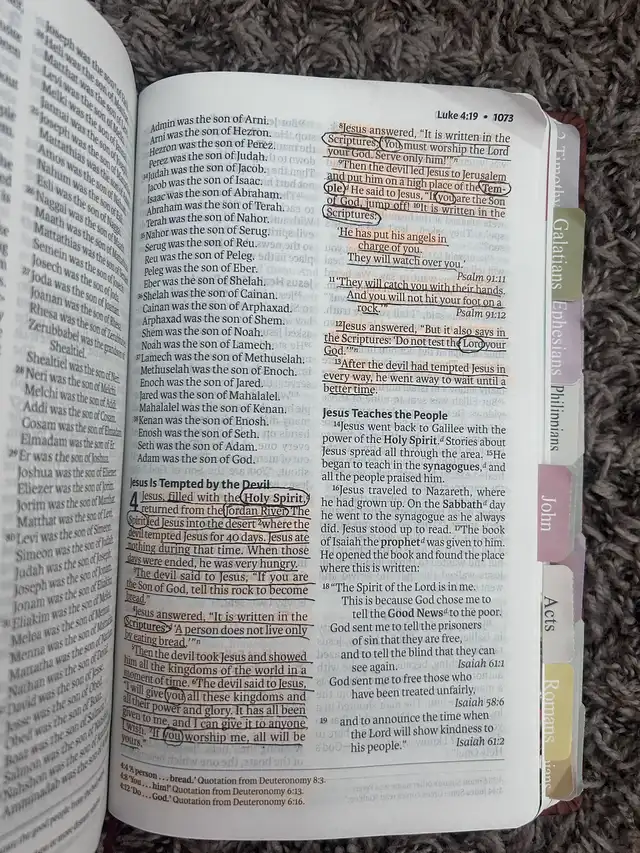 Joseph was the son of
Zerubbabel was the grandson of
Shealtiel.
Shealtiel was the son of Neri.
28 Neri was the son of Melchi.
Melchi was the son of Addi.
Addi was the son of Cosam.
Cosam was the son of Elmadam.
Elmadam was the son of Er.
29 Er was the son of Joshua.
Joshua was the son of Eliezer.
Eliezer was the son of Jorim.
Jorim was the son of Matthat.
Matthat was the son of Levi.
30 Levi was the son of Simeon.
Simeon was the son of Judah.
Judah was the son of Joseph.
Joseph was the son of Jonam.
Jonam was the son of Eliakim.
Luke 4:19 • 1073
Admin was the son of Arni.
Arni was the son of Hezron.
Hezron was the son of Perez.
Perez was the son of Judah.
34 Judah was the son of Jacob.
Jacob was the son of Isaac.
Isaac was the son of Abraham.
Abraham was the son of Terah.
Terah was the son of Nahor.
35 Nahor was the son of Serug.
Serug was the son of Reu.
Reu was the son of Peleg.
Peleg was the son of Eber.
Eber was the son of Shelah.
36 Shelah was the son of Cainan.
Cainan was the son of Arphaxad.
Arphaxad was the son of Shem.
Shem was the son of Noah.
Noah was the son of Lamech.
37 Lamech was the son of Methuselah.
Methuselah was the son of Enoch.
Enoch was the son of Jared.
Jared was the son of Mahalalel.
Mahalalel was the son of Kenan.
38 Kenan was the son of Enosh.
Enosh was the son of Seth.
Seth was the son of Adam.
Adam was the son of God.
Jesus Is Tempted by the Devil
4 Jesus, filled with the Holy Spirit,
returned from the Jordan River. The
Spirit led Jesus into the desert 2 where the
devil tempted Jesus for 40 days. Jesus ate
nothing during that time. When those
days were ended, he was very hungry.
3 The devil said to Jesus, "If you are
the Son of God, tell this rock to become
bread."
4 Jesus answered, "It is written in the
Scriptures: 'A person does not live only
by eating bread.'"n
5 Then the devil took Jesus and showed
him all the kingdoms of the world in a
moment of time. 6 The devil said to Jesus,
"I will give you all these kingdoms and
all their power and glory. It has all been
given to me, and I can give it to anyone
I wish. 7 If you worship me, all will be
yours."
8 Jesus answered, "It is written in the
Scriptures: 'You must worship the Lord
your God. Serve only him!'"n
9 Then the devil led Jesus to Jerusalem
and put him on a high place of the Tem-
ple. He said to Jesus, "If you are the Son
of God, jump off! 10 It is written in the
Scriptures:
'He has put his angels in
charge of you.
They will watch over you.'
Psalm 91:11
11 'They will catch you with their hands.
And you will not hit your foot on a
rock.'" Psalm 91:12
12 Jesus answered, "But it also says in
the Scriptures: 'Do not test the Lord your
God.'"n
13 After the devil had tempted Jesus in
every way, he went away to wait until a
better time.
Jesus Teaches the People
14 Jesus went back to Galilee with the
power of the Holy Spirit.d Stories about
Jesus spread all through the area. 15 He
began to teach in the synagogues,d and
all the people praised him.
16 Jesus traveled to Nazareth, where
he had grown up. On the Sabbathd day
he went to the synagogue as he always
did. Jesus stood up to read. 17 The book
of Isaiah the prophetd was given to him.
He opened the book and found the place
where this is written:
18 "The Spirit of the Lord is in me.
This is because God chose me to
tell the Good Newsd to the poor.
God sent me to tell the prisoners
of sin that they are free,
and to tell the blind that they can
see again. Isaiah 61:1
God sent me to free those who
have been treated unfairly,
Isaiah 58:6
19 and to announce the time when
the Lord will show kindness to
his people." Isaiah 61:2
4:4 'A person . . . bread.' Quotation from Deuteronomy 8:3.
4:8 'You . . . him!' Quotation from Deuteronomy 6:13.
4:12 'Do . . . God.' Quotation from Deuteronomy 6:16.
2 Timothy
Galatians
Ephesians
Philippians
John
Acts
Romans